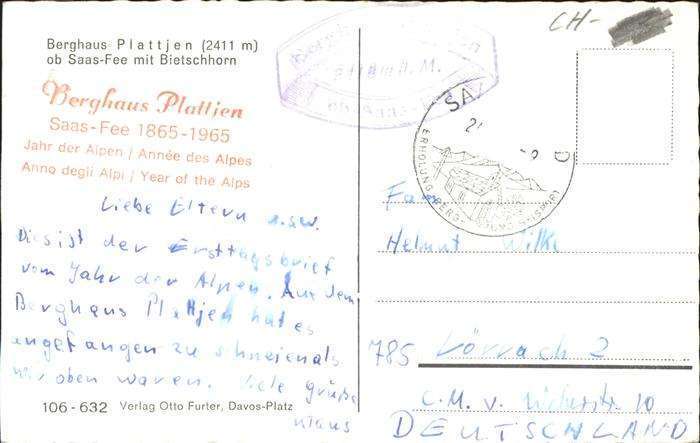 CH-
Berghaus Plattjen (2411 m)
ob Saas-Fee mit Bietschhorn
Berghaus Plattjen
Saas-Fee 1865-1965
Jahr der Alpen / Année des Alpes
Anno degli Alpi / Year of the Alps
Liebe Eltern u.s.w.
Dies ist der Ersttagsbrief
vom Jahr der Alpen. Aus dem
Berghaus Plattjen hat es
angefangen zu schneien als
wir oben waren. Viele Grüße
Klaus
106-632 Verlag Otto Furter, Davos-Platz
SA
ERHOLUNG BERG- SPORT
Fam
Helmut Wilke
785 Lörrach 2
C.M. v. 10
DEUTSCHLAND